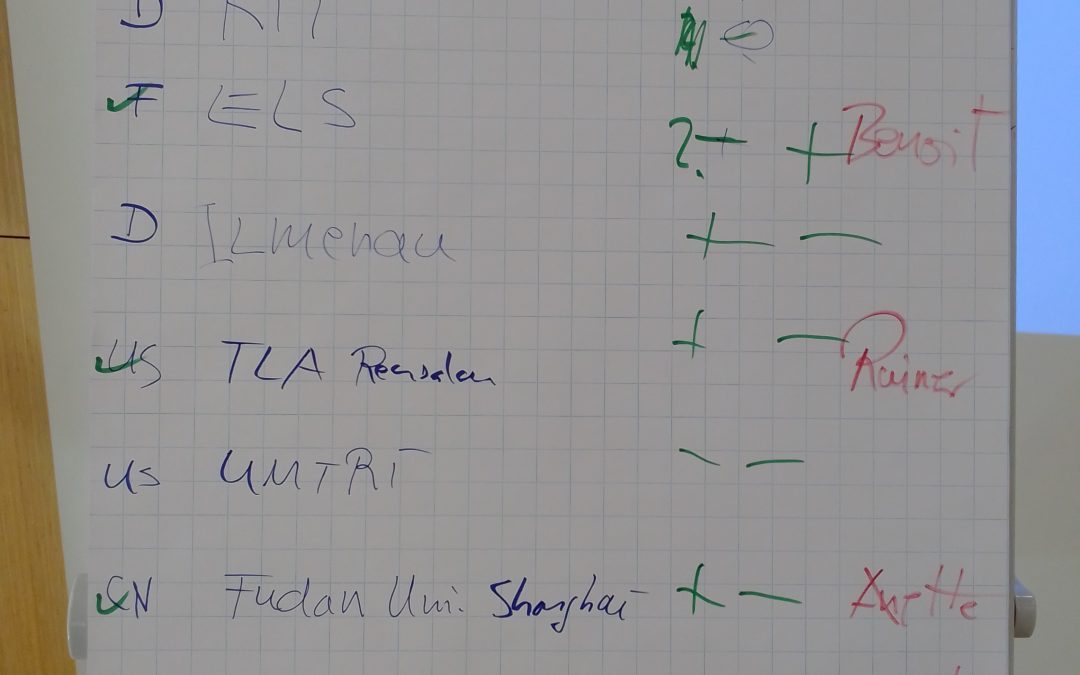 D KIT
F ELS ?+ + Benoit
D ILmenau + -
US TLA + - Rainer
US UMTRI - -
CN Fudan Uni. Shanghai + - Anette